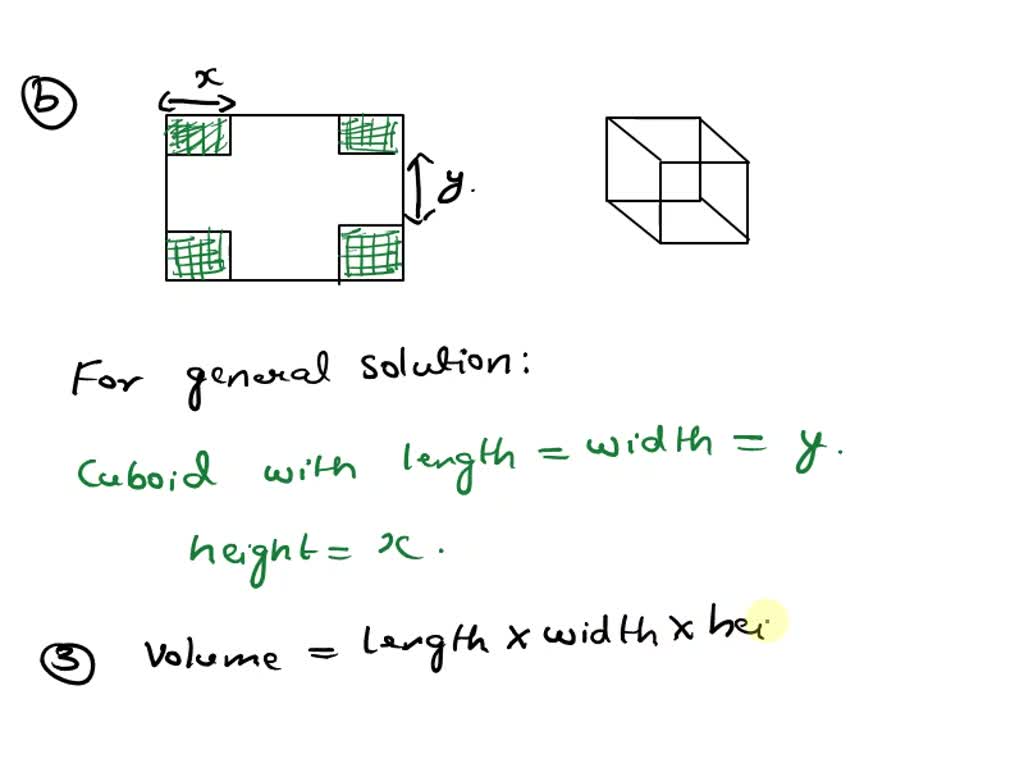 b
x
y.
For general solution:
Cuboid with length = width = y.
height = x.
3 Volume = length × width × hei